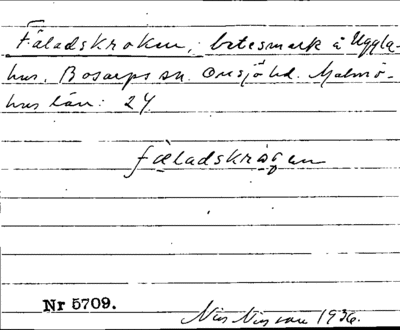 Fäladskroken, betesmark å Uggla-
hus, Bosarps sn. Onsjö hd. Malmö-
hus län: 24
fæladskrågen
Nr 5709.
Nils Nilsson 1936.